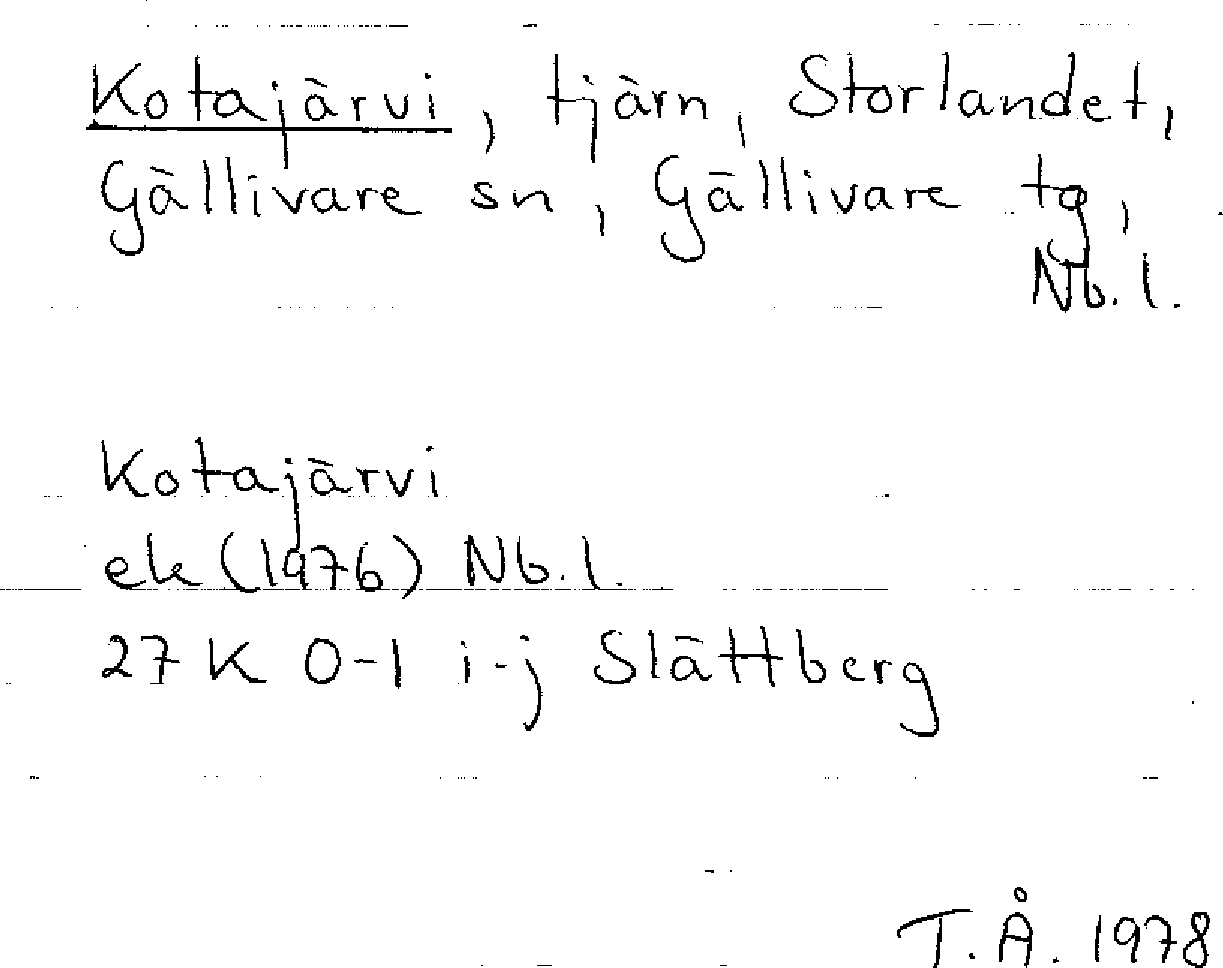 Kotajärvi, tjärn, Storlandet,
Gällivare sn, Gällivare tg,
Nb. l.
Kotajärvi
ek (1976) Nb. l.
27 K 0-1 i-j Slättberg
T.Å. 1978